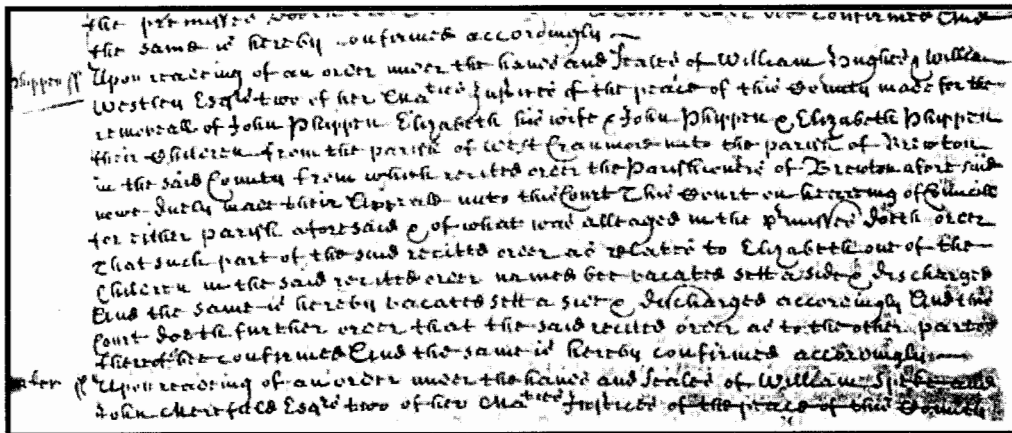 the premisses doeth order be confirmed And
the same is hereby confirmed accordingly
Phippen ss Upon reading of an order under the hands and seales of William Hughes & William
Westley Esqrs two of her Maties Justices of the peace of this County made for the
removeall of John Phippen Elizabeth his wife & John Phippen & Elizabeth Phippen
their Children from the parish of West Cranmore unto the parish of Brewton
in the said County from which recited order the Parishioners of Brewton aforesaid
have duely made their Appeale unto this Court This Court on hearing of Councell
for either parish aforesaid & of what was alleaged in the pmisses doeth order
That such part of the said recited order as relates to Elizabeth one of the
Children in the said recited order named bee vacated sett aside & discharged
And the same is hereby vacated sett a side & discharged accordingly And this
Court doeth further order that the said recited order as to the other partes
thereof bee confirmed And the same is hereby confirmed accordingly
ss Upon reading of an order under the hands and seales of William Speke and
John Merefeild Esqrs two of her Maties Justices of the peace of this County